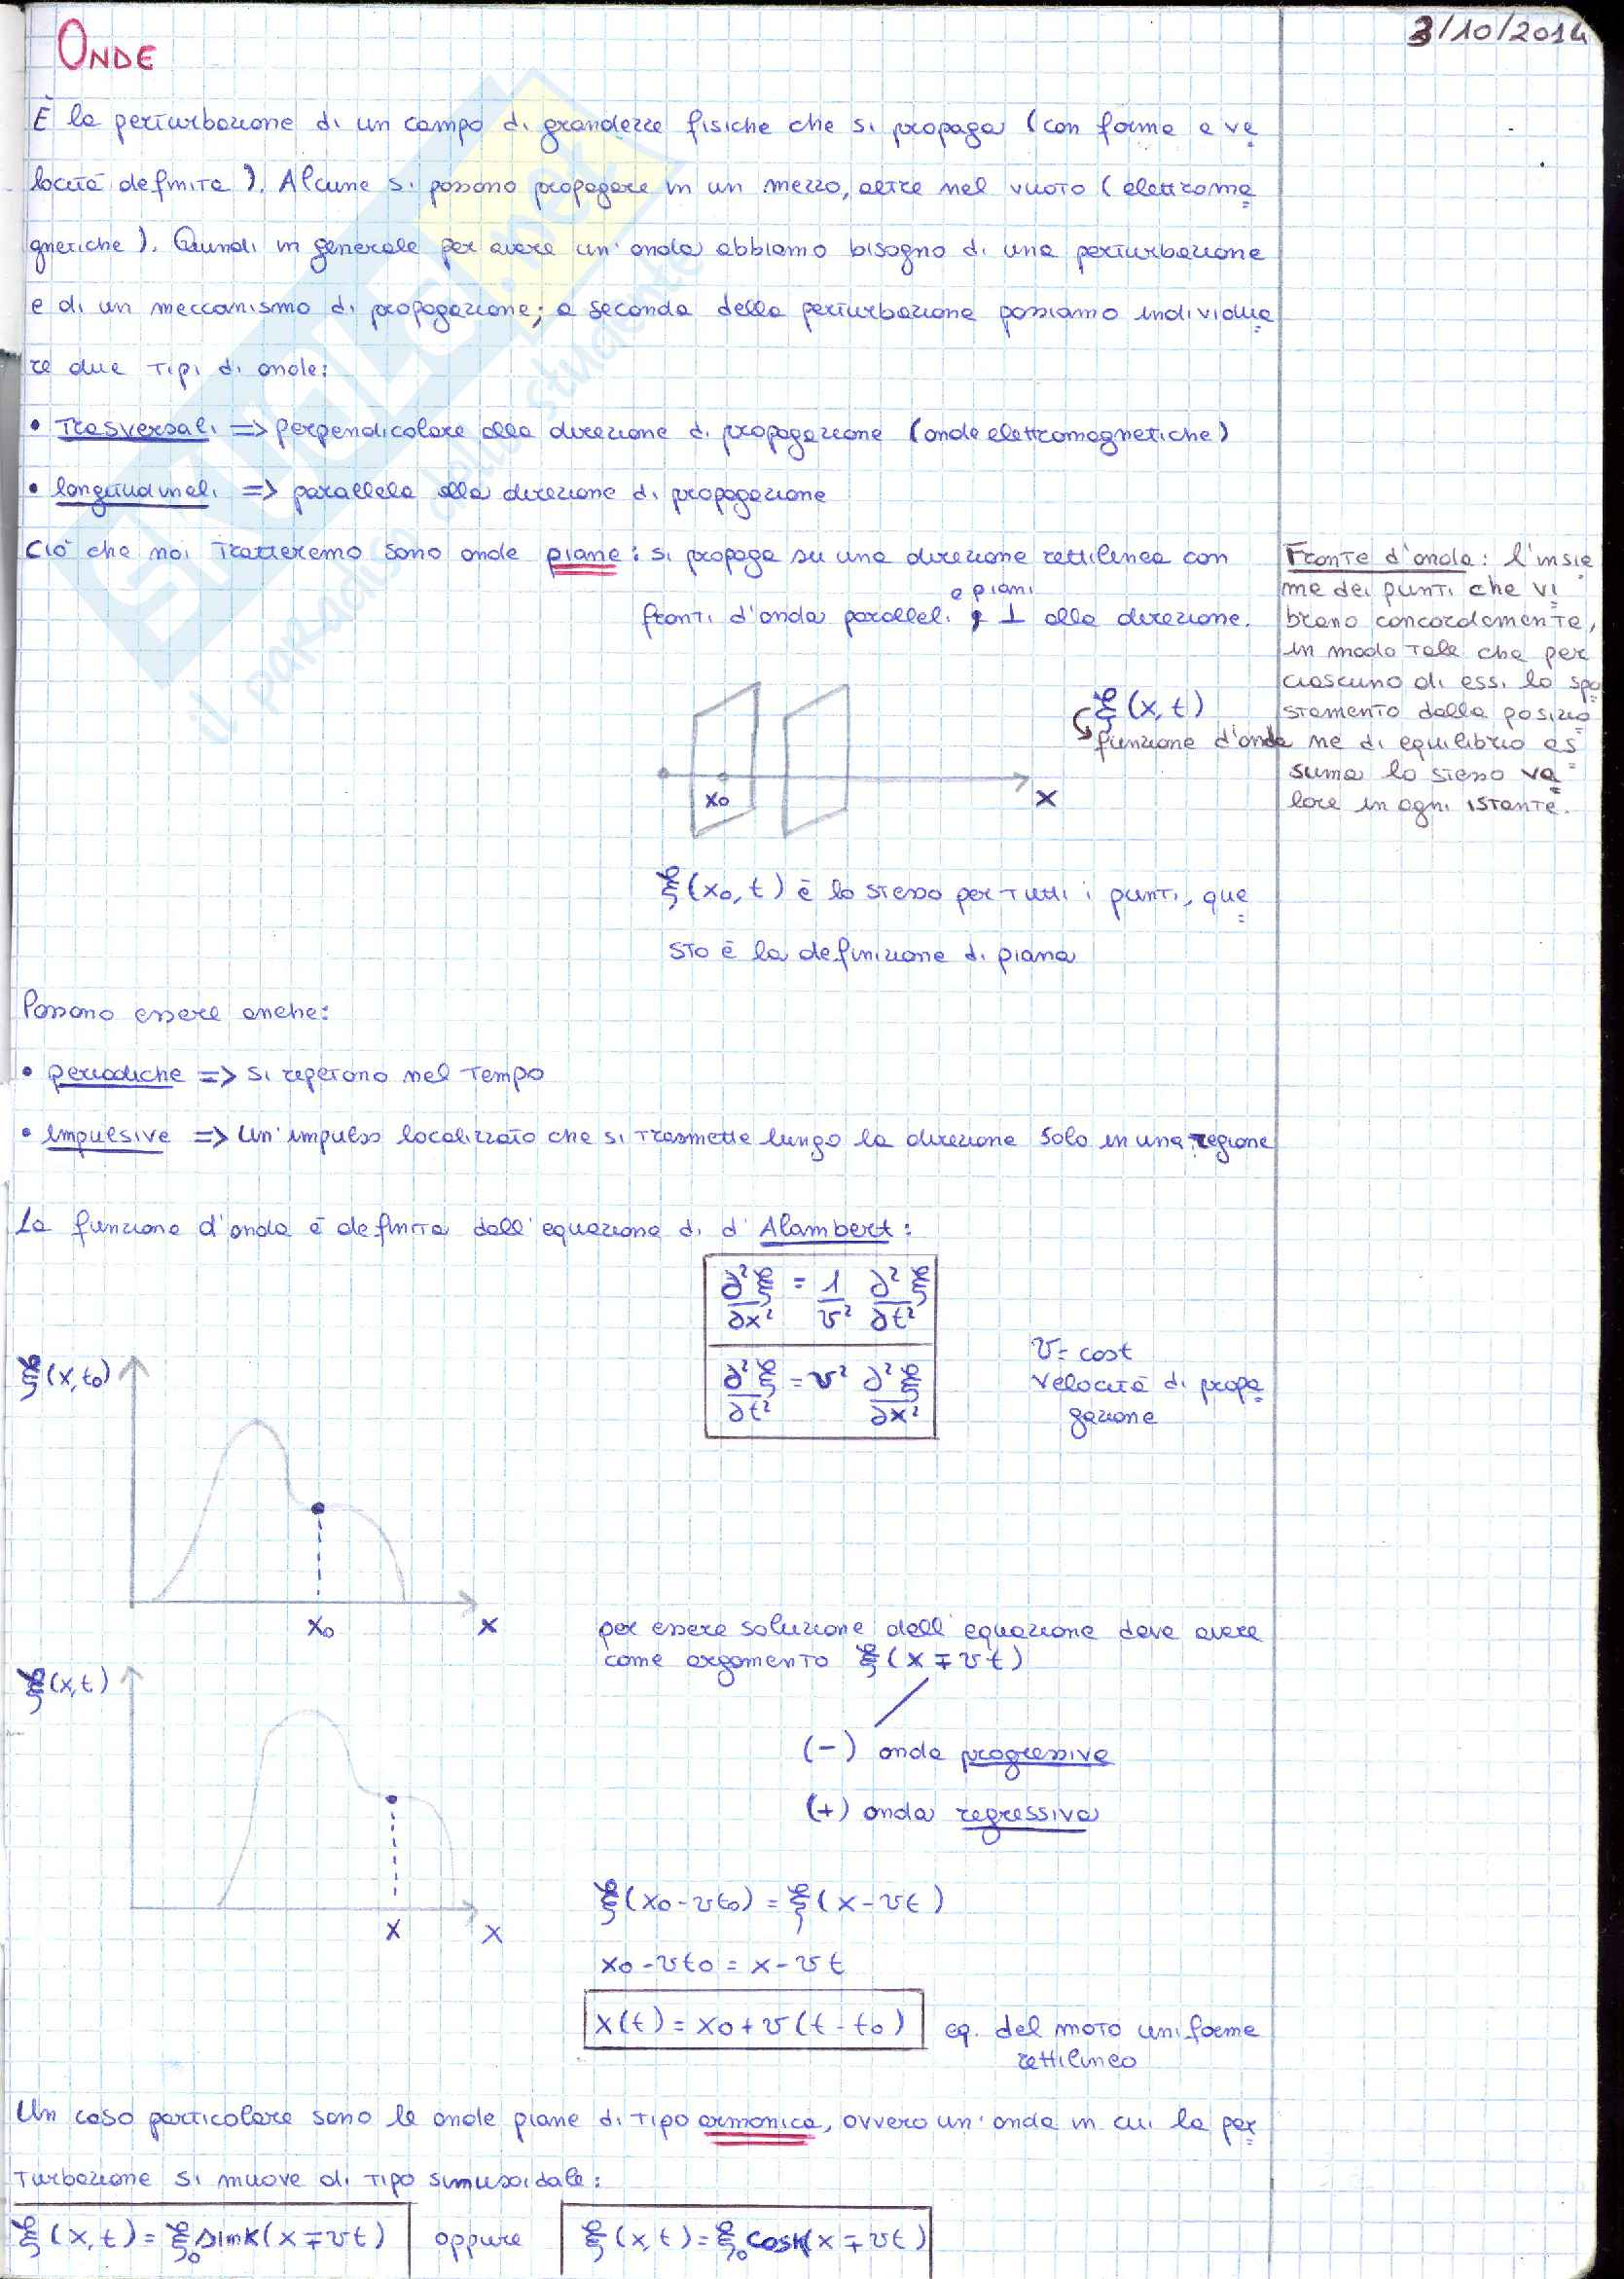 3/10/2014
ONDE
È la perturbazione di un campo di grandezze fisiche che si propaga (con forma e ve
locità definita). Alcune si possono propagare in un mezzo, altre nel vuoto (elettroma
gnetiche). Quindi in generale per avere un'onda abbiamo bisogno di una perturbazione
e di un meccanismo di propagazione; a seconda della perturbazione possiamo individua
re due tipi di onde:
• Trasversali => perpendicolare alla direzione di propagazione (onde elettromagnetiche)
• longitudinali => parallela alla direzione di propagazione
Ciò che noi tratteremo sono onde piane: si propaga su una direzione rettilinea con
e piani
fronti d'onda paralleli e ⊥ alla direzione.
Fronte d'onda: l'insie
me dei punti che vi
brano concordemente,
in modo tale che per
ciascuno di essi lo spo
stamento dalla posizio
ne di equilibrio as
suma lo stesso va
lore in ogni istante.
ξ(x,t)
funzione d'onda
x₀
x
ξ(x₀,t) è lo stesso per tutti i punti, que
sto è la definizione di piana
Possono essere anche:
• periodiche => si ripetono nel tempo
• impulsive => un'impulso localizzato che si trasmette lungo la direzione solo in una regione
La funzione d'onda è definita dall'equazione di d'Alambert:
∂²ξ/∂x² = 1/v² ∂²ξ/∂t²
∂²ξ/∂t² = v² ∂²ξ/∂x²
v= cost
velocità di propa
gazione
ξ(x,t₀)
x₀
x
per essere soluzione dell'equazione deve avere
come argomento ξ(x∓vt)
ξ(x,t)
(-) onda progressiva
(+) onda regressiva
x
x
ξ(x₀-vt₀) = ξ(x-vt)
x₀-vt₀ = x-vt
x(t) = x₀+v(t-t₀) eq. del moto uniforme
rettilineo
Un caso particolare sono le onde piane di tipo armonica, ovvero un'onda in cui la per
turbazione si muove di tipo sinusoidale:
ξ(x,t) = ξ₀ sink(x∓vt) oppure ξ(x,t) = ξ₀ cosk(x∓vt)
il paradiso dello studente